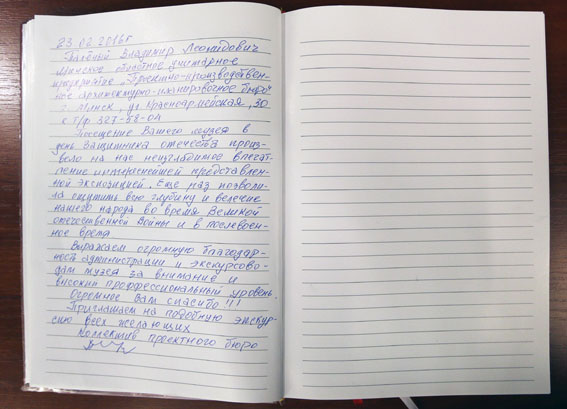 23.02.2016г
Владимир Леонидович
Минское областное унитарное
предприятие „Проектно-производствен-
ное архитектурно-планировочное бюро"
г. Минск, ул Красноармейская, 30
к. т/ф. 327-58-04
Посещение Вашего музея в
день Защитника отечества произ-
вело на нас неизгладимое впечат-
ление интереснейшей представлен-
ной экспозицией. Еще раз позволи-
ла ощутить всю глубину и величие
нашего народа во время Великой
отечественной Войны и в послевоен-
ное время
Выражаем огромную благодар-
ность администрации и экскурсово-
дам музея за внимание и
высокий профессиональный уровень.
Огромное Вам спасибо!!!
Приглашаем на подобную экскур-
сию всех желающих
Коллектив проектного бюро